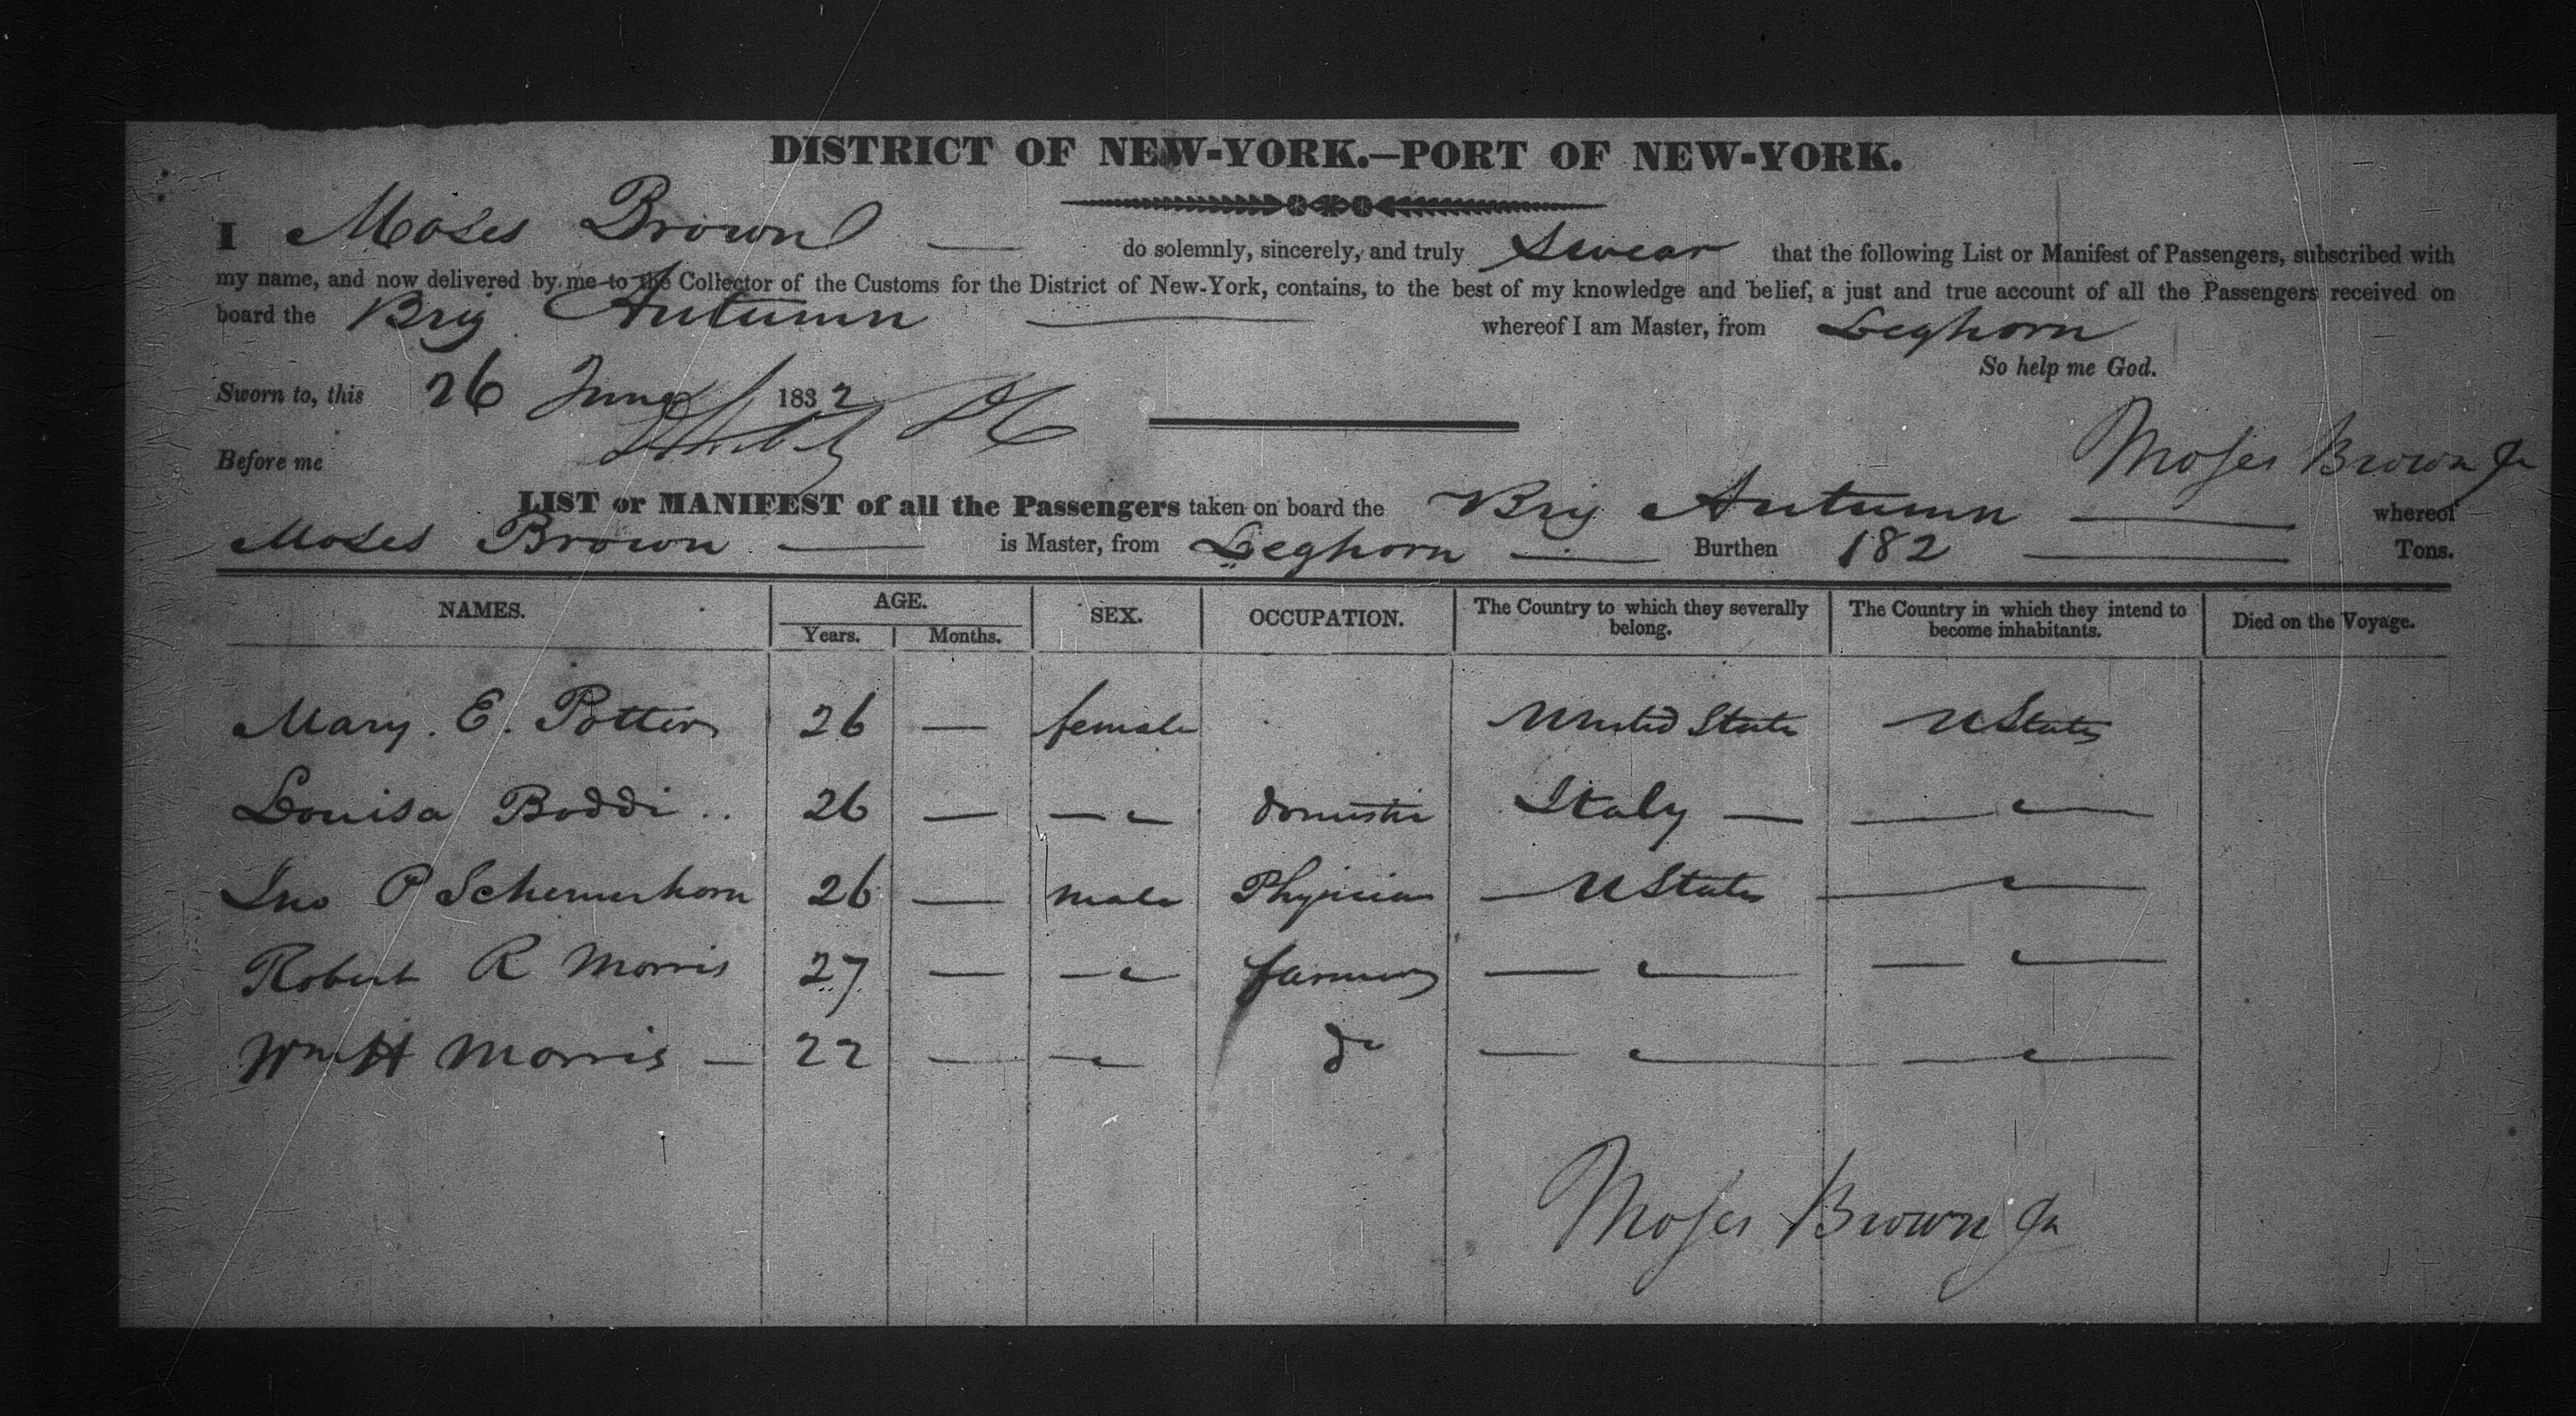 DISTRICT OF NEW-YORK.—PORT OF NEW-YORK.
I Moses Brown — do solemnly, sincerely, and truly Swear that the following List or Manifest of Passengers, subscribed with
my name, and now delivered by me to the Collector of the Customs for the District of New-York, contains, to the best of my knowledge and belief, a just and true account of all the Passengers received on
board the Brig Autumn — whereof I am Master, from Leghorn
So help me God.
Sworn to, this 26 June 1832
Before me
Moses Brown Jr
LIST or MANIFEST of all the Passengers taken on board the Brig Autumn — whereof
Moses Brown — is Master, from Leghorn — Burthen 182 — Tons.
NAMES. AGE. Years. Months. SEX. OCCUPATION. The Country to which they severally belong. The Country in which they intend to become inhabitants. Died on the Voyage.
Mary. E. Potter 26 — female United States U States
Louisa Boddi .. 26 — — " domestic Italy — — " —
Jno P Schemerhorn 26 — male Physician — U States — " —
Robert R Morris 27 — — " farmer — " — — " —
Wm H Morris — 22 — — " do — " — — " —
Moses Brown Jr